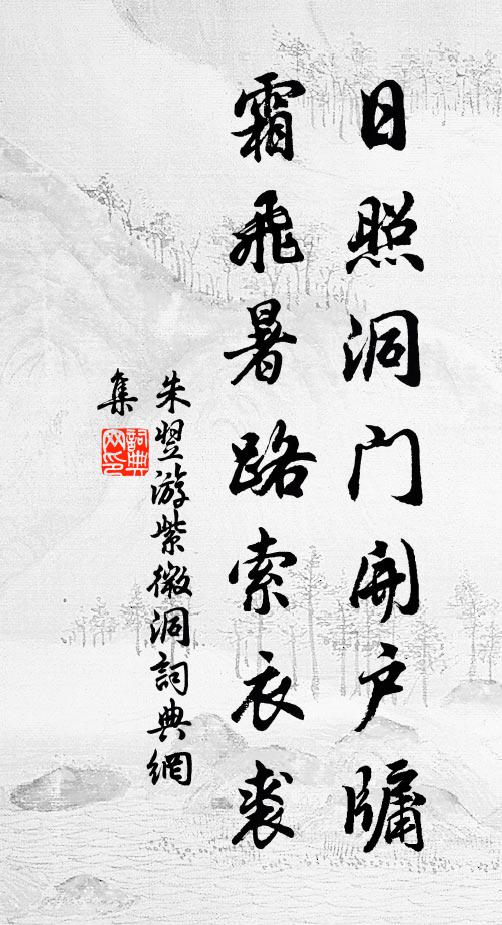 日照洞门开户牖
霜飛暑路索衣裘
朱翌游紫微洞詞典網
集
詞典網印